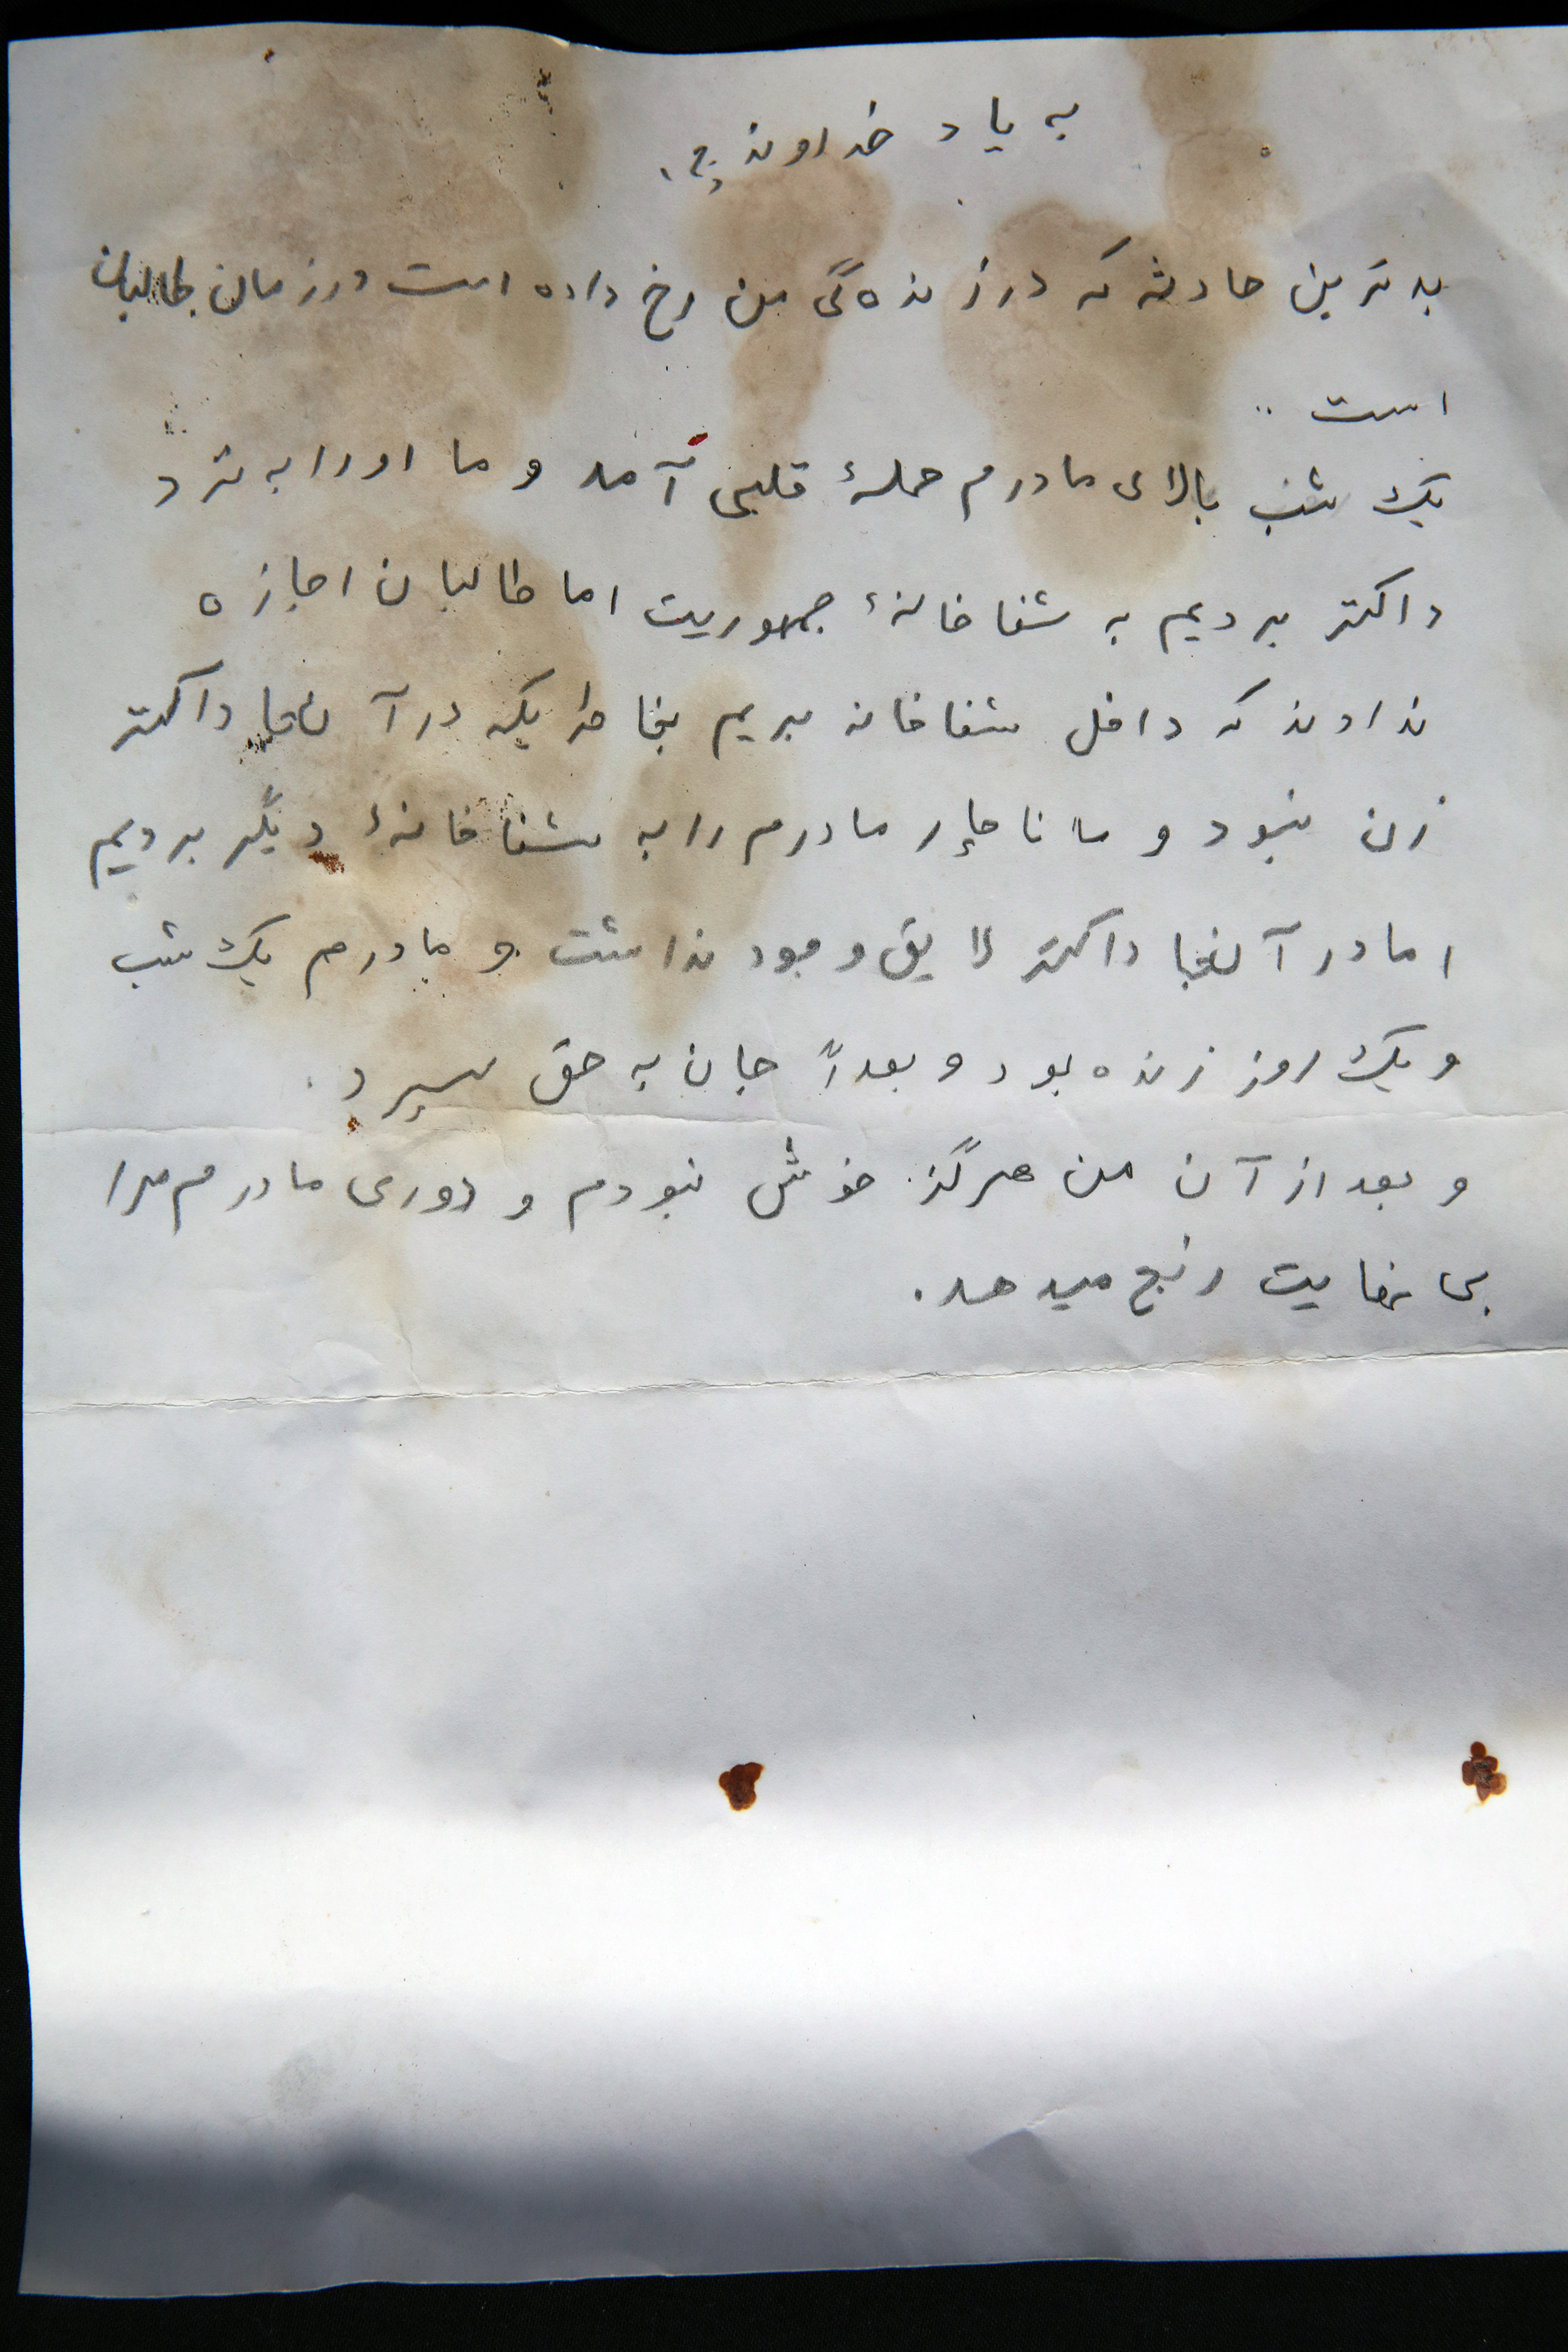 به یاد خداوند ج،
بدترین حادثه که در زنده گی من رخ داده است در زمان طالبان
است ..
یک شب بالای مادرم حملهٔ قلبی آمد و ما او را به نزد
داکتر بردیم به شفاخانهٔ جمهوریت اما طالبان اجازه
ندادند که داخل شفاخانه بریم بخاطریکه در آنجا داکتر
زن نبود و ما ناچار مادرم را به شفاخانهٔ دیگر بردیم
اما در آنجا داکتر لایق وجود نداشت و مادرم یک شب
و یک روز زنده بود و بعداً جان به حق سپرد.
و بعد از آن من هرگز خوش نبودم و دوری مادرم مرا
بی نهایت رنج میدهد.